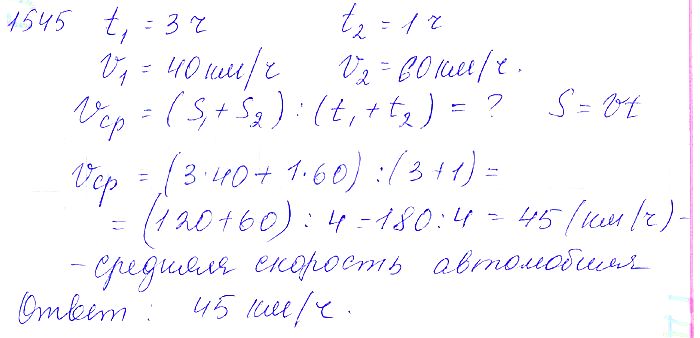 1545 t₁ = 3 ч t₂ = 1 ч
v₁ = 40 км/ч v₂ = 60 км/ч.
Vср = (S₁ + S₂) : (t₁ + t₂) = ? S = vt
Vср = (3·40 + 1·60) : (3 + 1) =
= (120 + 60) : 4 = 180 : 4 = 45 (км/ч) -
- средняя скорость автомобиля
Ответ : 45 км/ч.